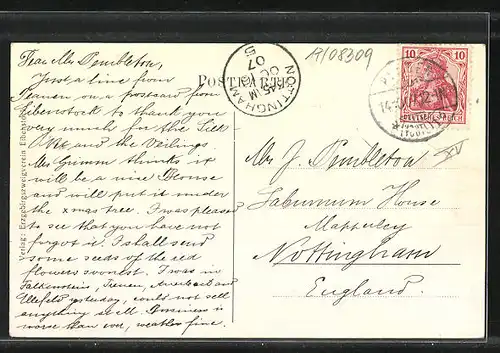 Dear Mr Pembleton,
Just a line from
on a postcard from
Eibenstock to thank you
very much for the Silk
and the Veilings
Mrs Grimm thinks it
will be a nice Blouse
and will put it under
the xmas tree. I was pleased
to see that you have not
forgot it. I shall send
some seeds of the red
flowers soonest. I was in
Falkenstein, Auerbach and
Ellefeld yesterday, could not sell
anything at all. Business is
worse than ever, weather fine.
Verlag: Erzgebirgszweigverein Eibenstock
POSTKARTE
NOTTINGHAM
OC
07
A/08309
10 10
DEUTSCHES REICH
Mr J. Pembleton
Laburnum House
Mapperley
Nottingham
England.